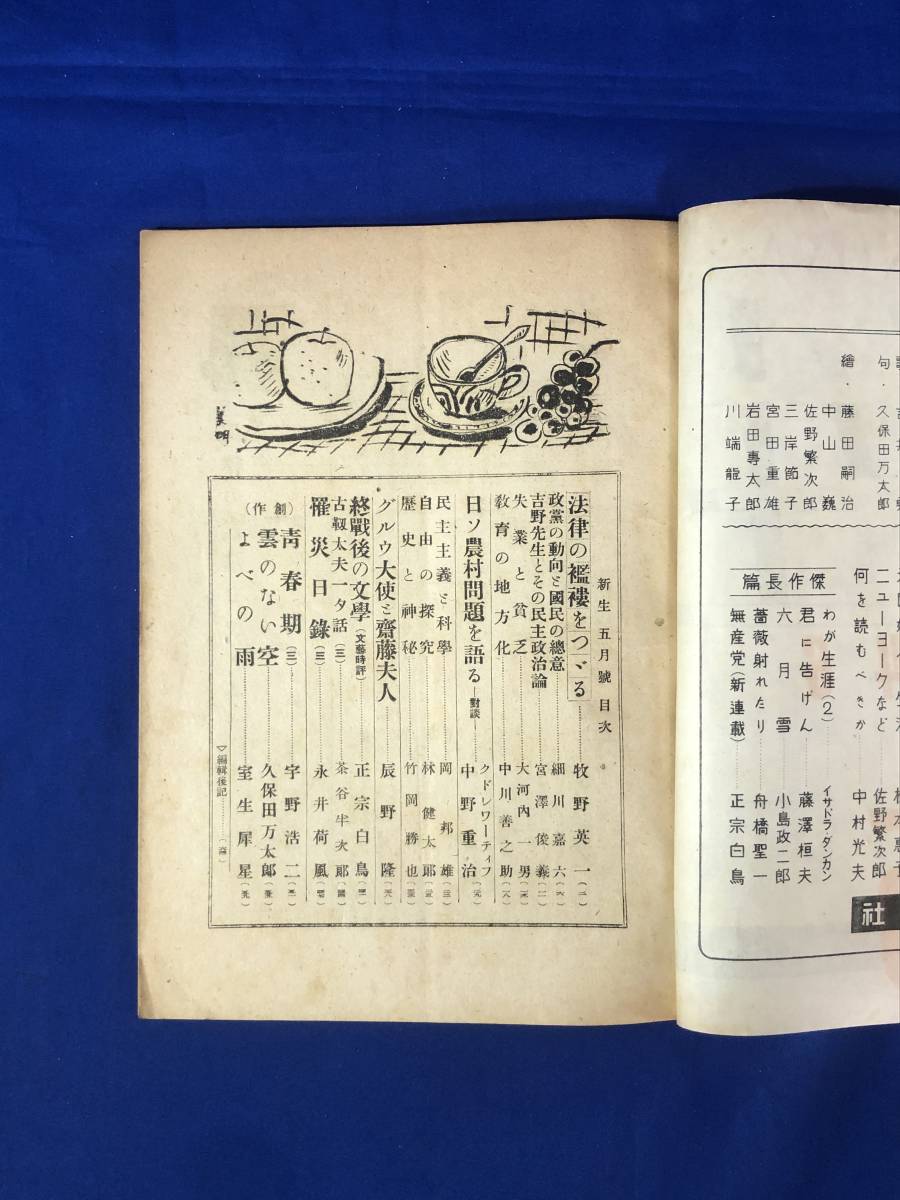 繪・
藤田嗣治
中山巍
佐野繁次郎
三岸節子
宮田重雄
岩田專太郎
川端龍子
句・久保田万太郎
ニューヨークなど 佐野繁次郎
何を読むべきか 中村光夫
傑作長篇
わが生涯(2) イサドラ・ダンカン
君に告げん 藤澤桓夫
六月雪 小島政二郎
薔薇射れたり 舟橋聖一
無産党(新連載) 正宗白鳥
社
新生 五月號 目次
法律の襤褸をつゞる 牧野英一(一)
政黨の動向と國民の總意 細川嘉六
吉野先生とその民主政治論 宮澤俊義
失業と貧乏 大河内一男
敎育の地方化 中川善之助
日ソ農村問題を語る―對談― クドレワーティフ 中野重治
民主主義と科學 岡邦雄
自由の探究 林健太郎
歷史と神秘 竹岡勝也
グルウ大使と齋藤夫人 辰野隆
終戰後の文學(文藝時評) 正宗白鳥
古靱太夫一夕話(三) 茶谷半次郎
罹災日錄(三) 永井荷風
(創作)
靑春期(三) 宇野浩二
雲のない空 久保田万太郎
よべの雨 室生犀星
▽編輯後記